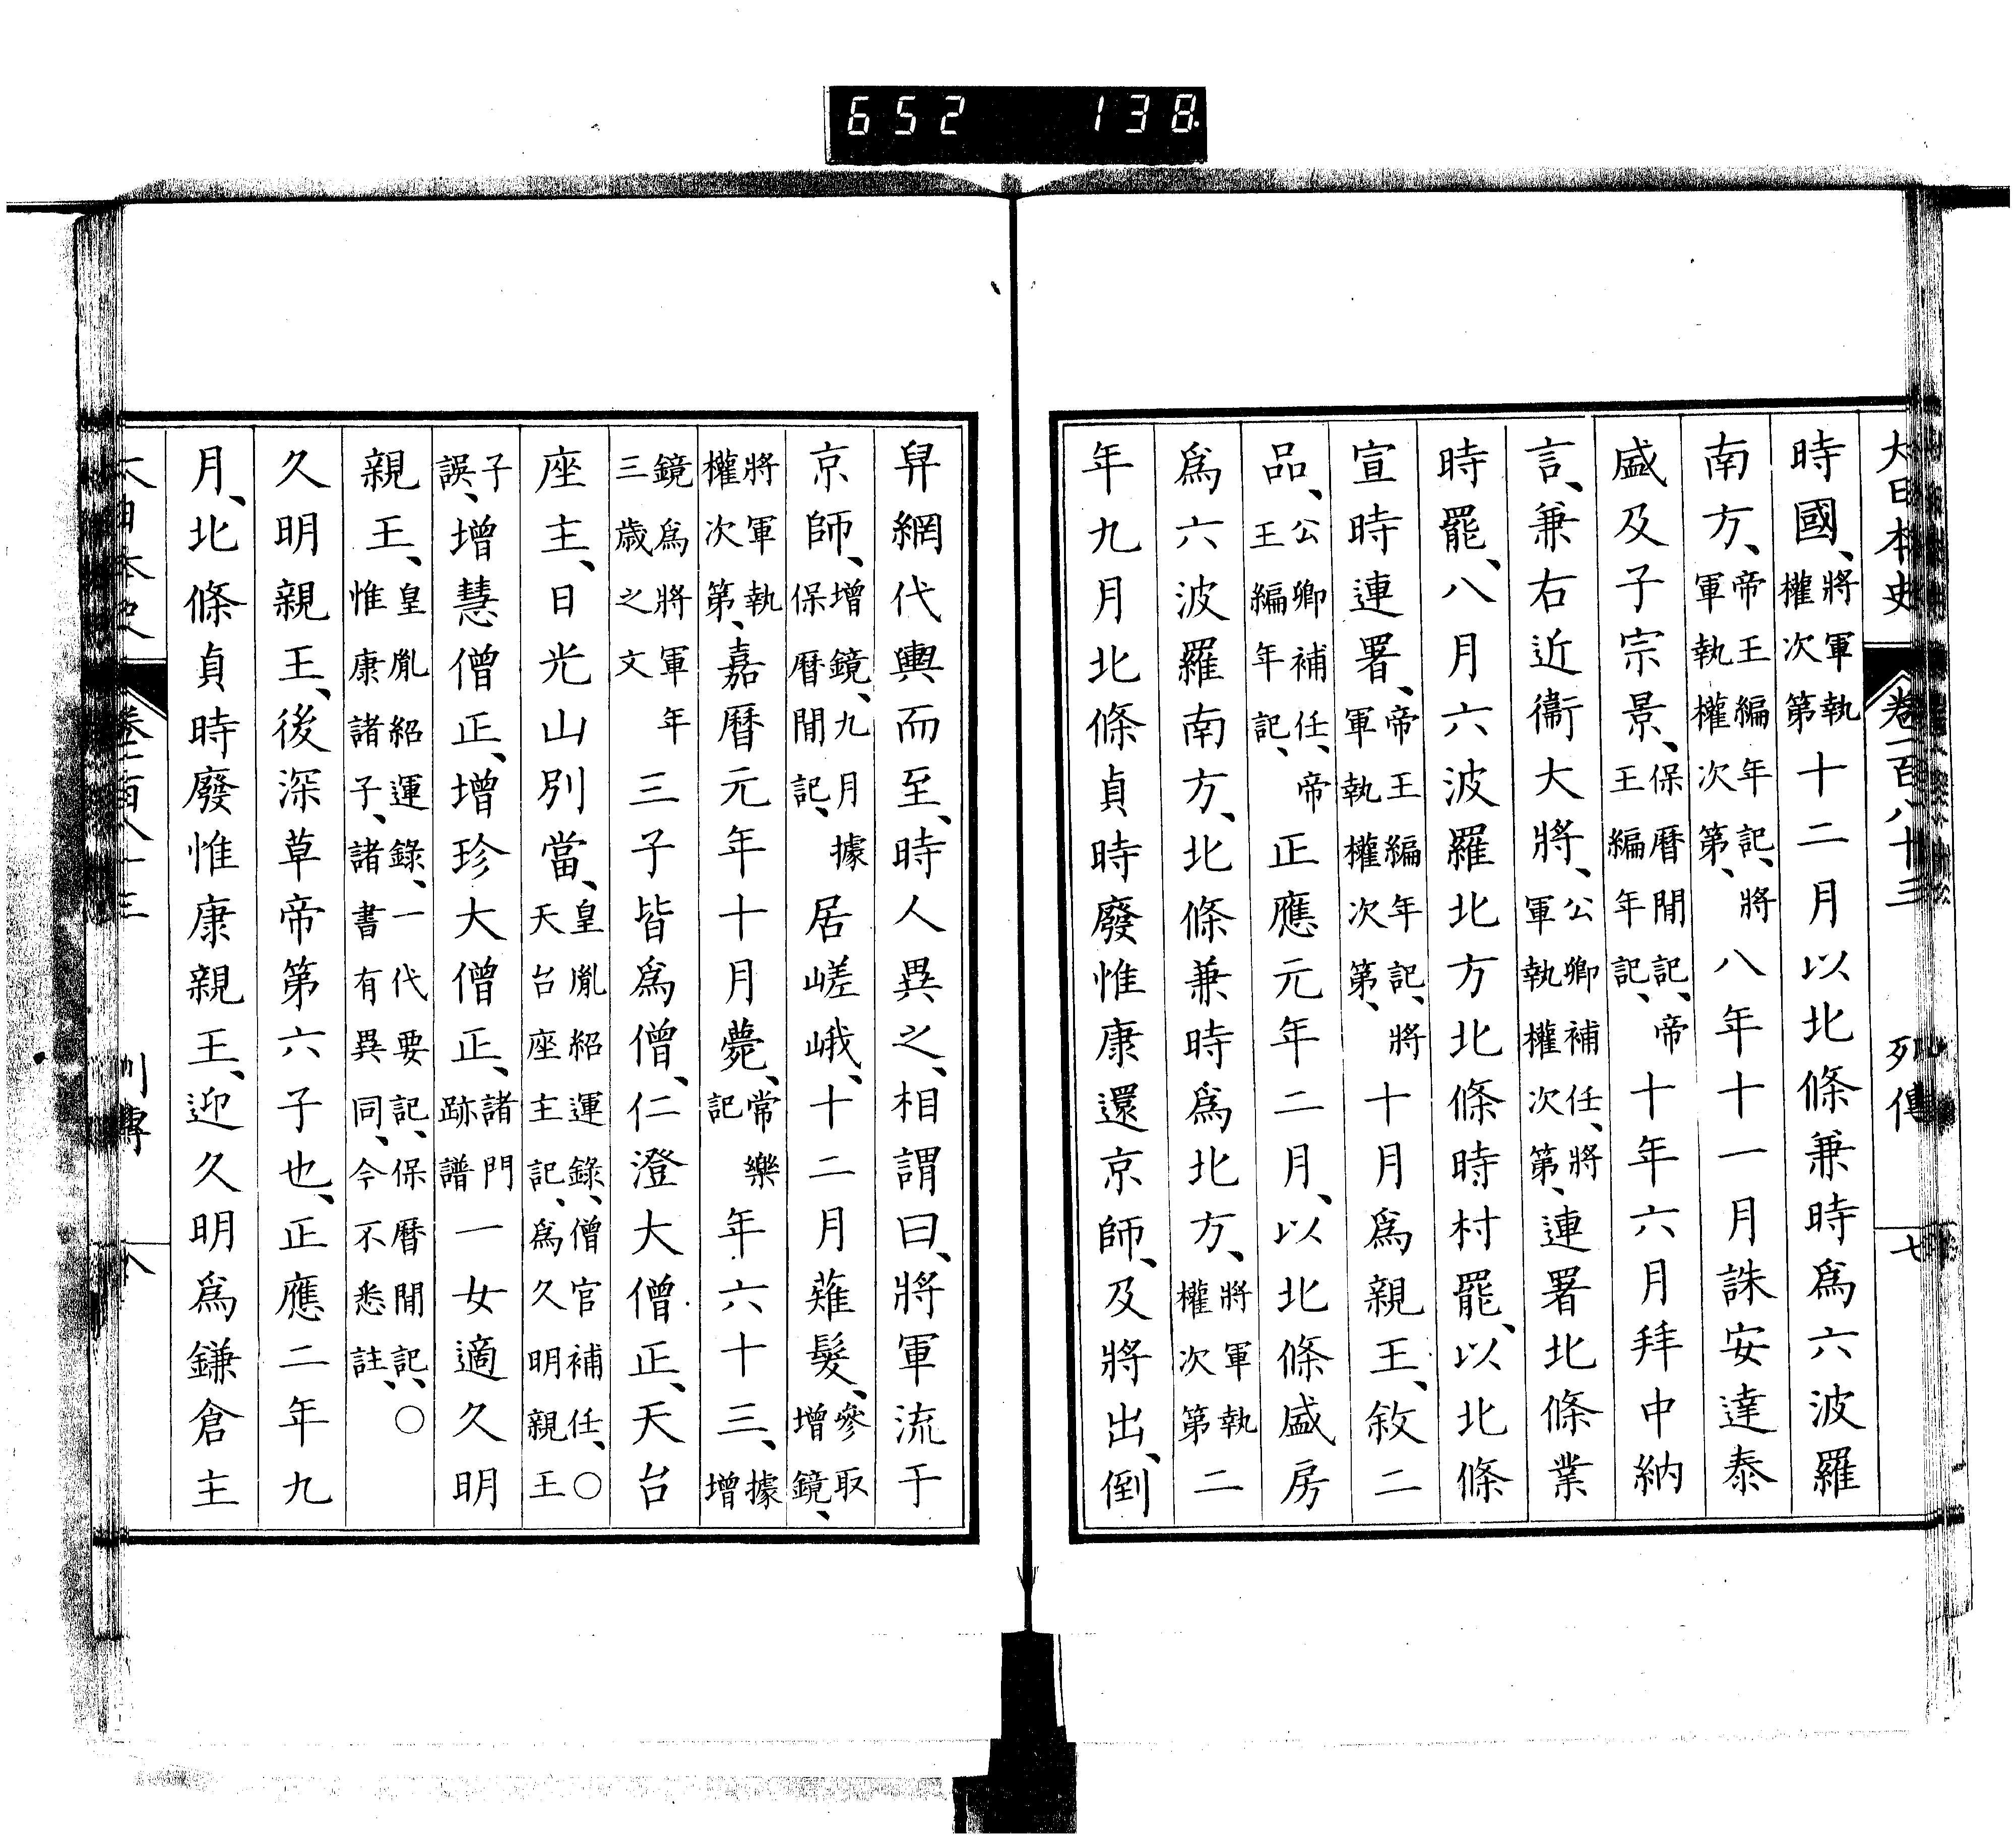 652 138
大日本史 卷一百八十三 列傳 七
時國、將軍執權次第十二月以北條兼時爲六波羅
南方、帝王編年記、將軍執權次第、八年十一月誅安達泰
盛及子宗景、保曆閒記、帝王編年記、十年六月拜中納
言、兼右近衞大將、公卿補任、將軍執權次第、連署北條業
時罷、八月六波羅北方北條時村罷、以北條
宣時連署、帝王編年記、將軍執權次第、十月爲親王、敘二
品、公卿補任、帝王編年記、正應元年二月、以北條盛房
爲六波羅南方、北條兼時爲北方、將軍執權次第二
年九月北條貞時廢惟康還京師、及將出、倒
舁網代輿而至、時人異之、相謂曰、將軍流于
京師、增鏡、九月據保曆閒記、居嵯峨、十二月薙髮、參取增鏡、
將軍執權次第、嘉曆元年十月薨、常樂記年六十三、據增
鏡爲將軍年三歲之文三子皆爲僧、仁澄大僧正、天台
座主、日光山別當、皇胤紹運錄、僧官補任、〇天台座主記、爲久明親王
子誤、增慧僧正、增珍大僧正、諸門跡譜一女適久明
親王、皇胤紹運錄、一代要記、保曆閒記、〇惟康諸子、諸書有異同、今不悉註、
久明親王、後深草帝第六子也、正應二年九
月、北條貞時廢惟康親王、迎久明爲鎌倉主
大日本史 卷一百八十三 列傳 八